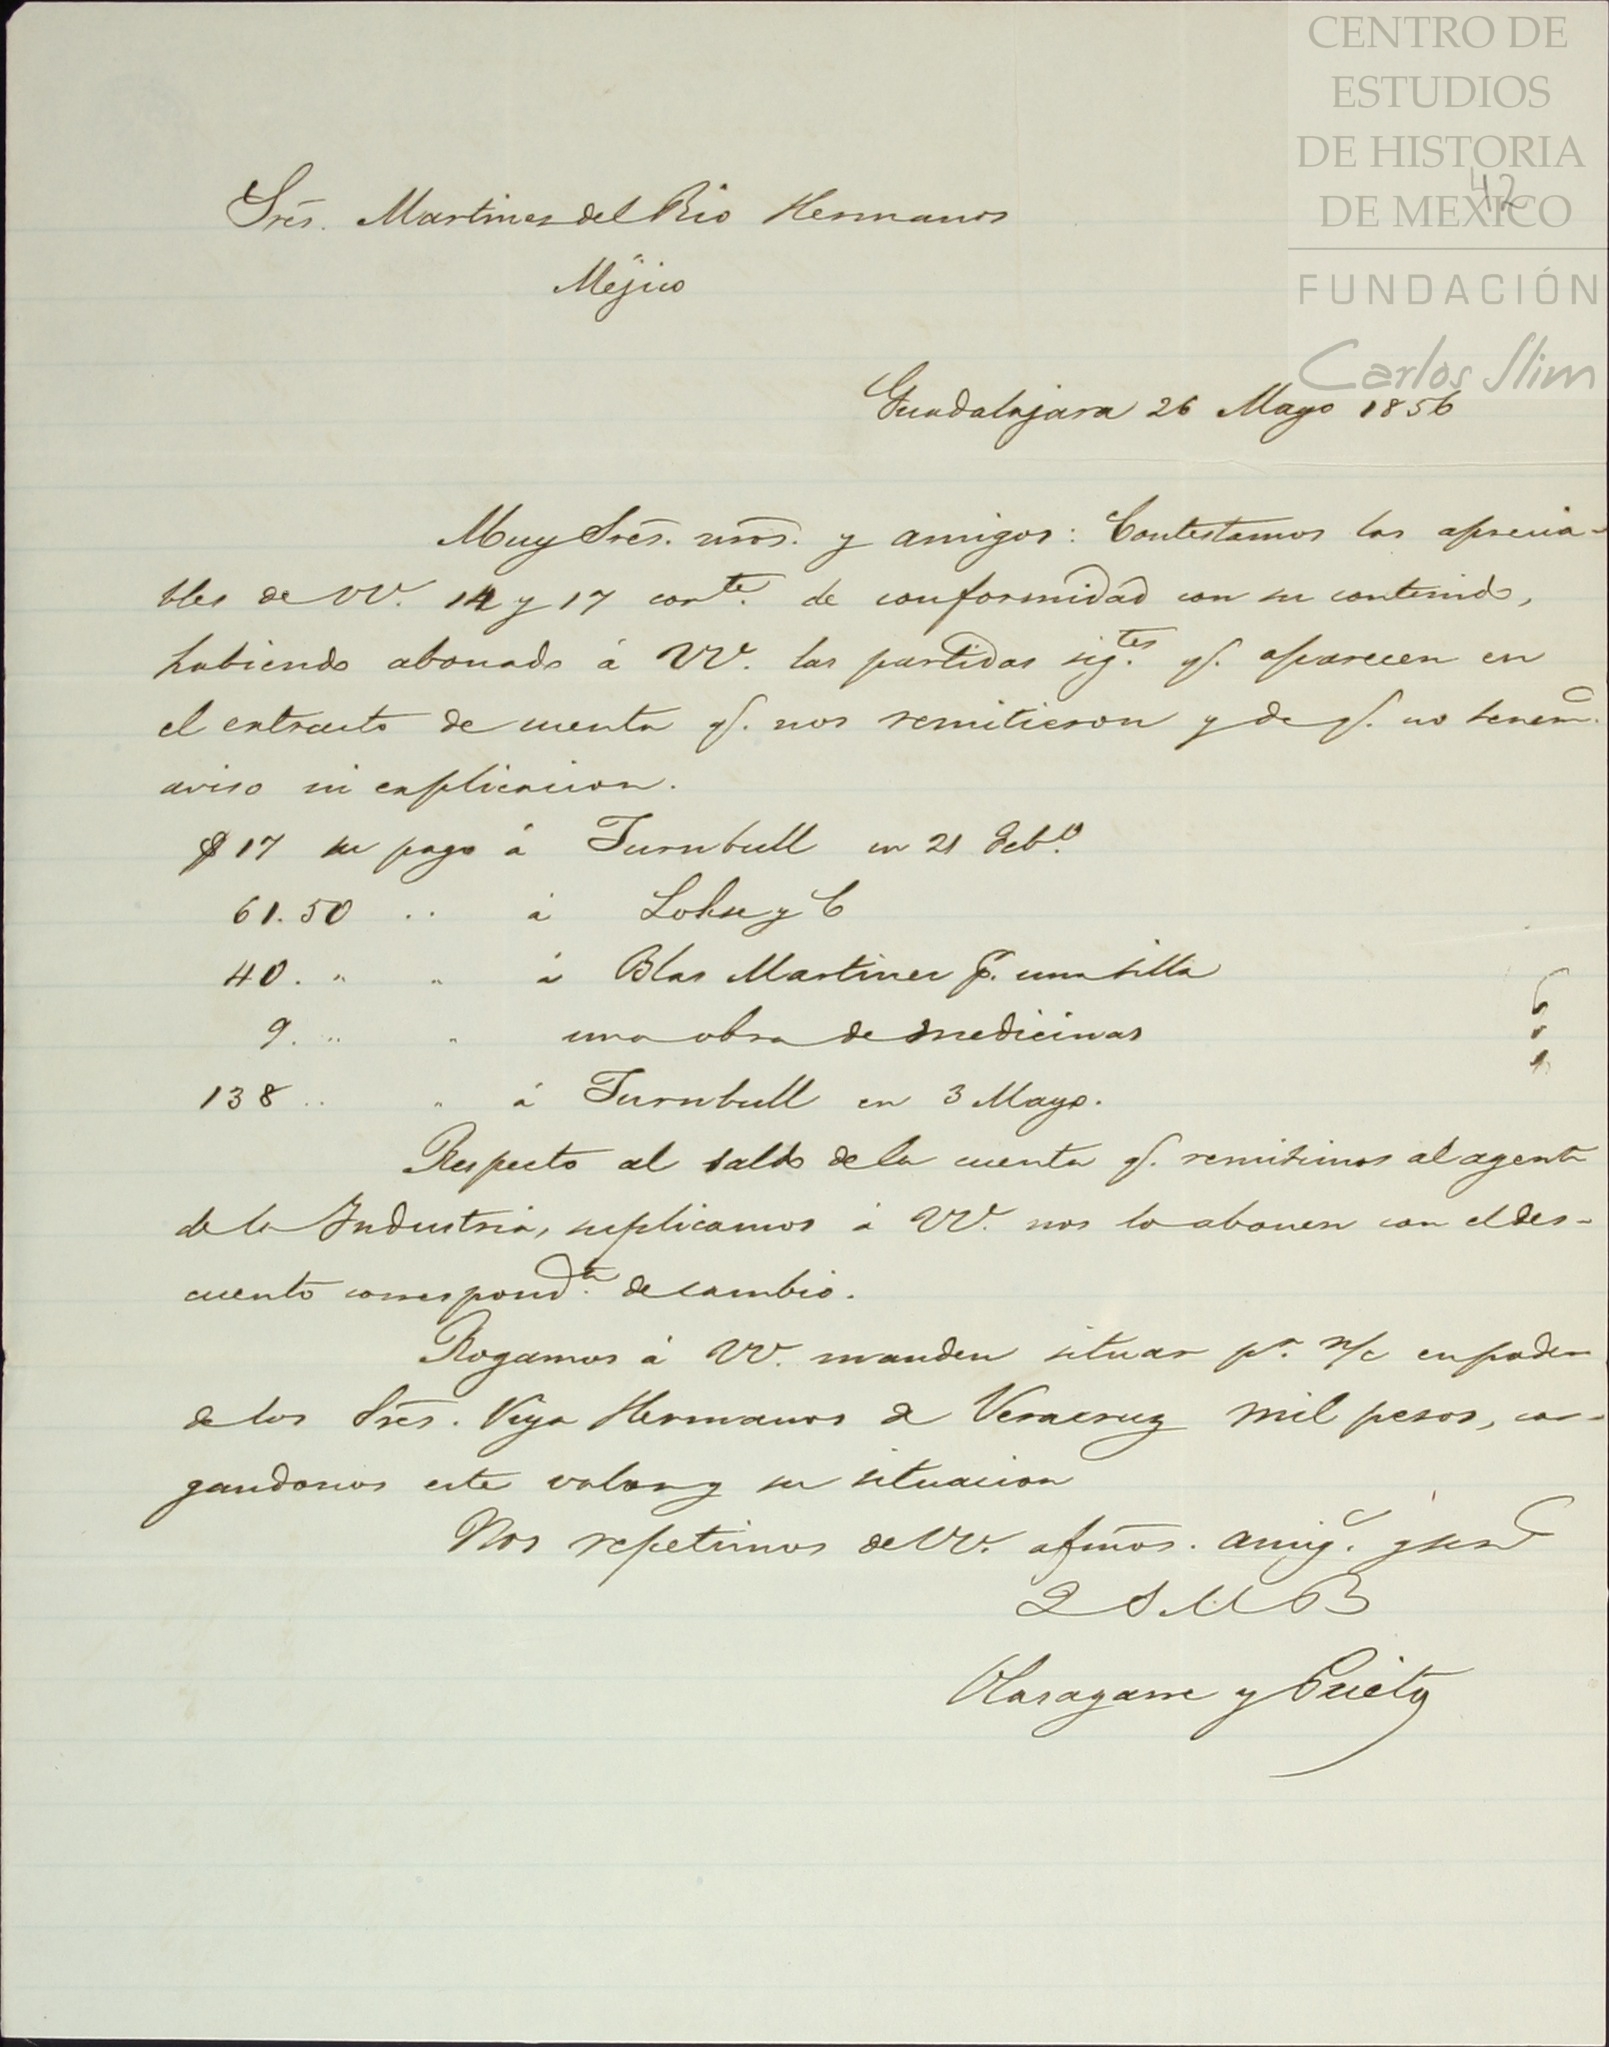 CENTRO DE
ESTUDIOS
DE HISTORIA
DE MEXICO
42
FUNDACIÓN
Carlos Slim
Sres. Martinez del Rio Hermanos
Méjico
Guadalajara 26 Mayo 1856
Muy Sres. nros. y amigos: Contestamos las aprecia-
bles de VV. 14 y 17 corte. de conformidad con su contenido,
habiendo abonado á VV. las partidas sigtes. q. aparecen en
el extracto de cuenta q. nos remitieron y de q. no tenem.
aviso ni explicacion.
$ 17 su pago á Turnbull en 21 Febo.
61.50 .. á Lohse y C
40. " " á Blas Martinez p. una silla
9. " " una obra de medicinas
138 .. " á Turnbull en 3 Mayo.
Respecto al saldo de la cuenta q. remitimos al agente
de la Industria, suplicamos á VV. nos lo abonen con el des-
cuento correspondte. de cambio.
Rogamos á VV. manden situar pr. n/c en poder
de los Sres. Viya Hermanos de Veracruz mil pesos, car-
gandonos este valor y su situacion
Nos repetimos de VV. afmos. amig. y ser
Q S M B
Olasagarre y Prieto